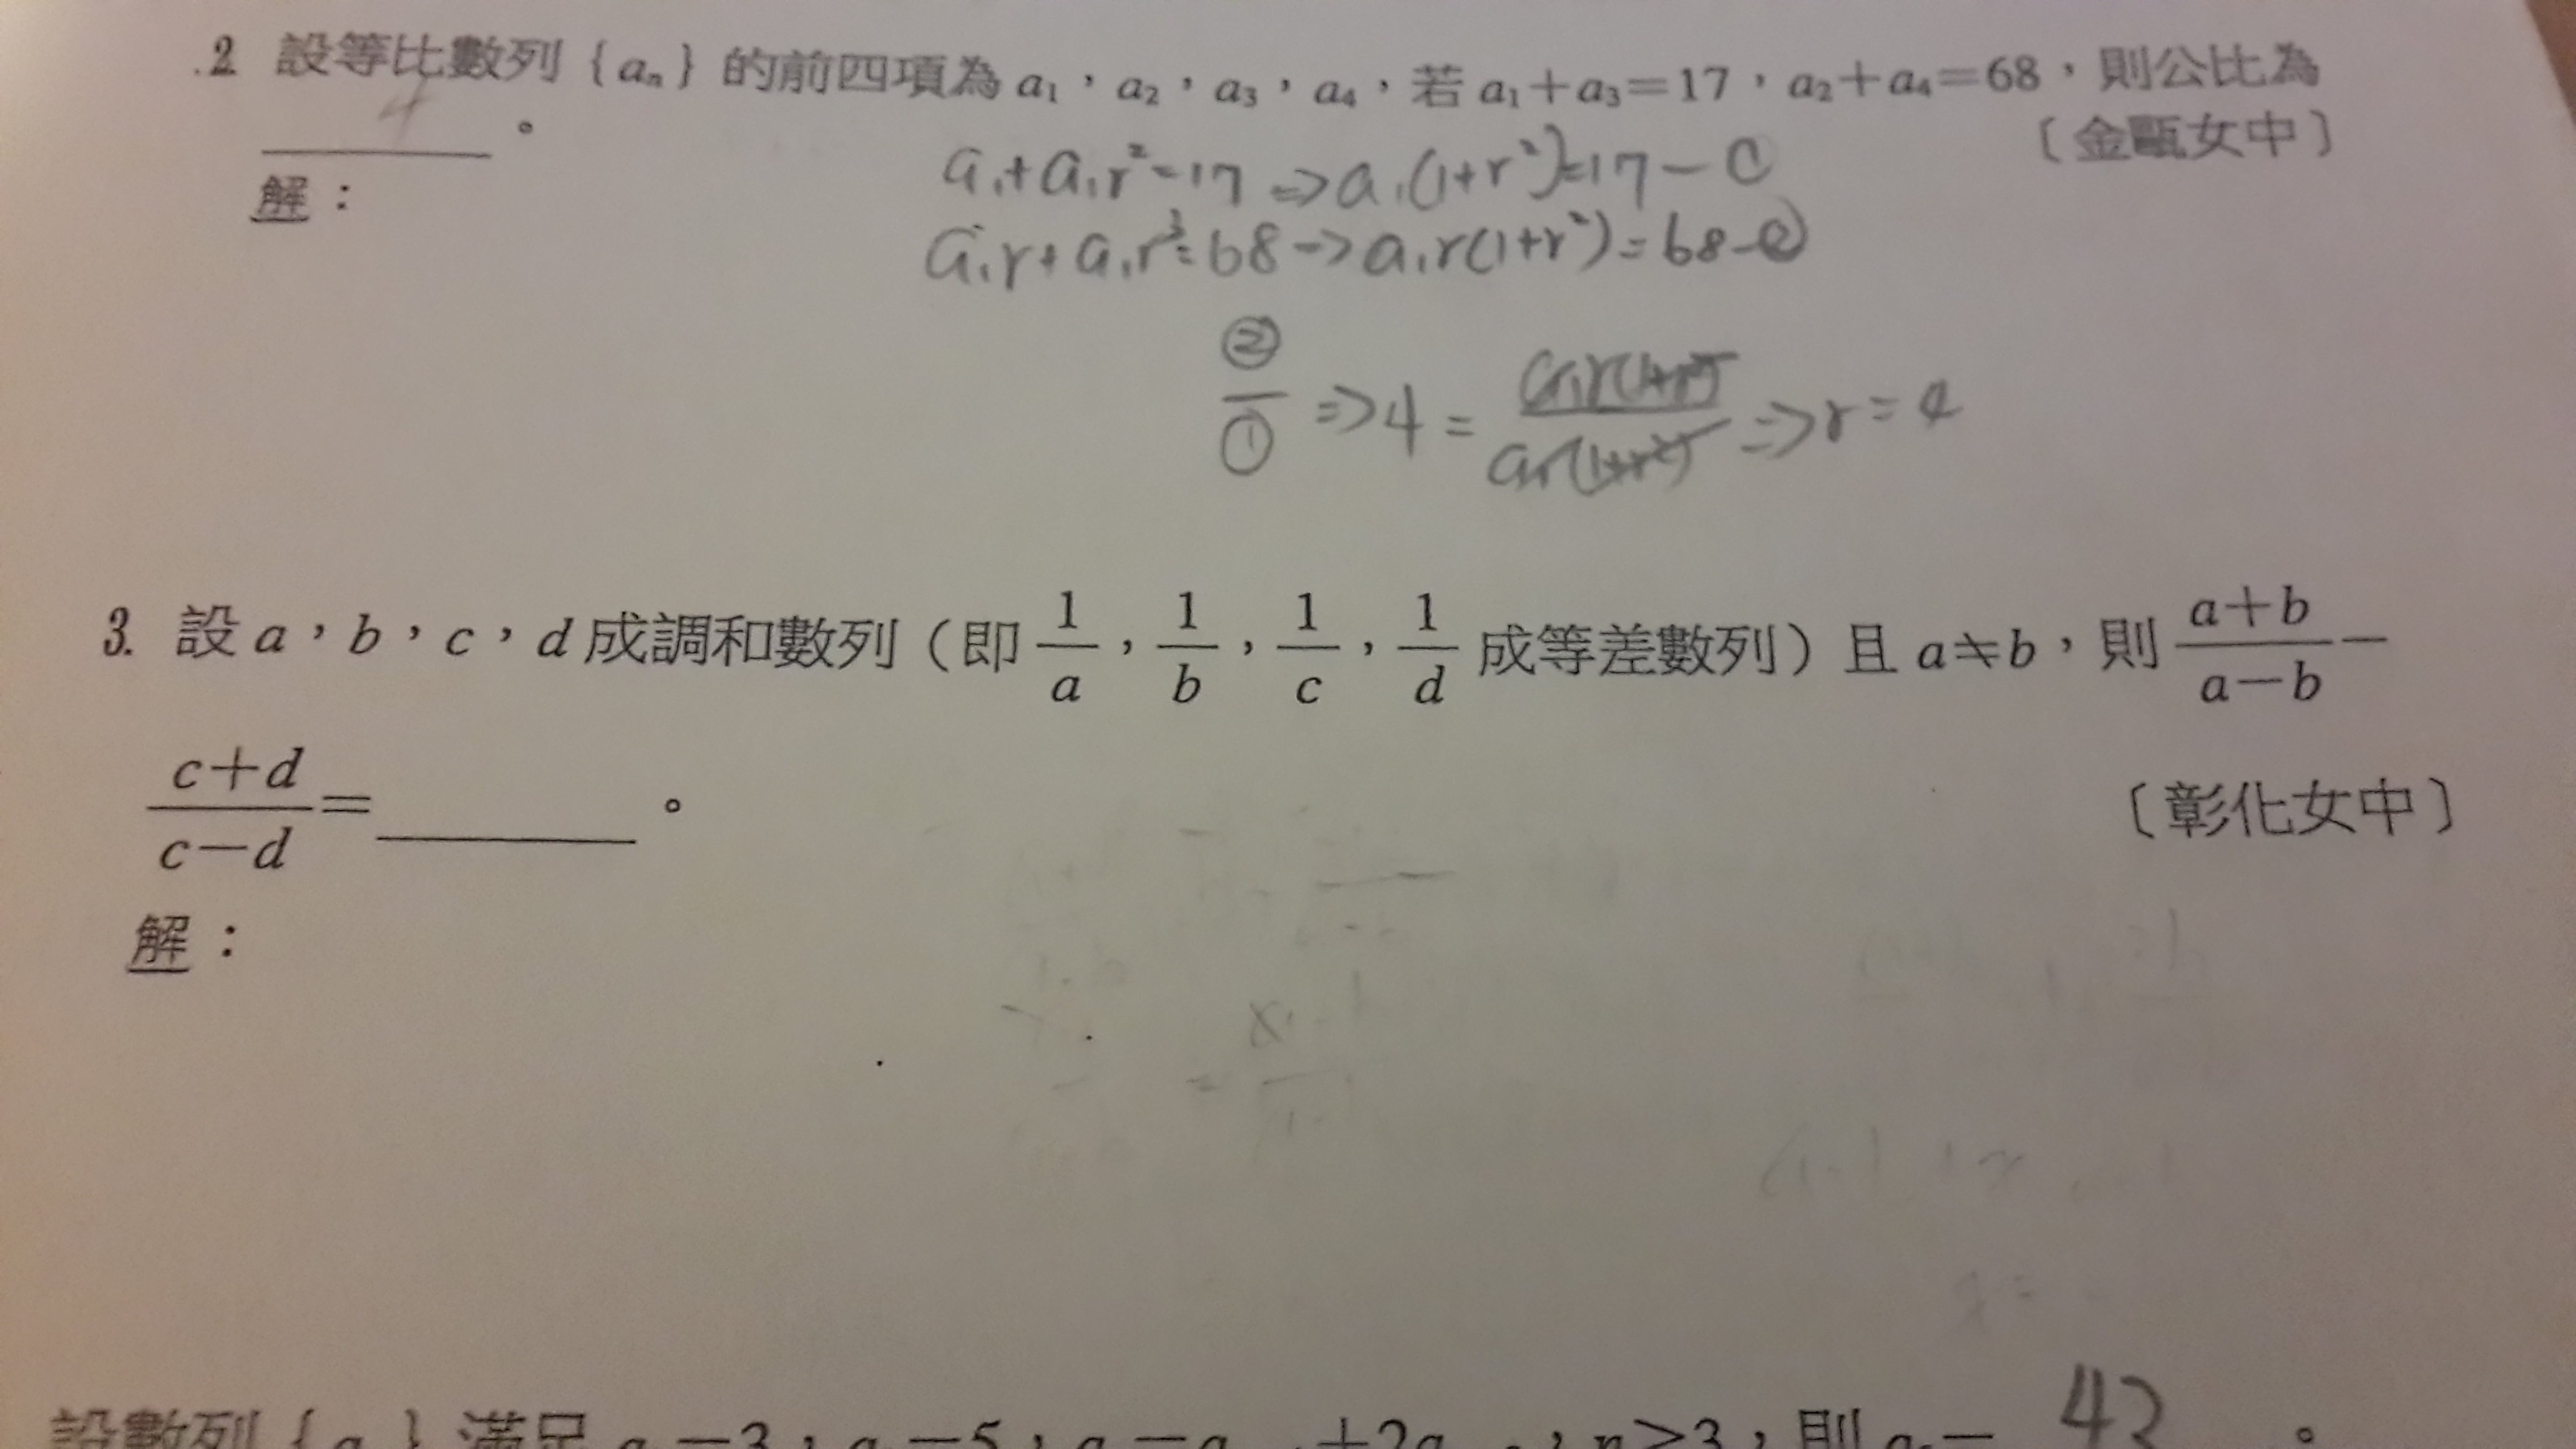 2. 設等比數列{aₙ}的前四項為a₁，a₂，a₃，a₄，若a₁+a₃=17，a₂+a₄=68，則公比為
4 。 〔金甌女中〕
解：
a₁+a₁r²=17 => a₁(1+r²)=17 - ①
a₁r+a₁r³=68 -> a₁r(1+r²)=68-②
②/① => 4 = a₁r(1+r²)/a₁(1+r²) => r=4
3. 設a，b，c，d成調和數列（即1/a，1/b，1/c，1/d成等差數列）且a≠b，則(a+b)/(a−b)−
(c+d)/(c−d)=______。 〔彰化女中〕
解：
設數列{a }滿足a =3，a =5，a =a +2a ，n≥3，則a = 43 。